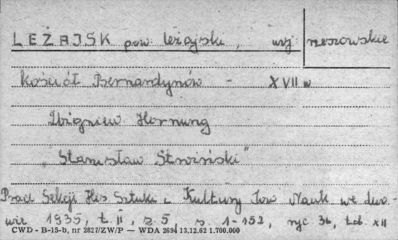 LEŻAJSK pow. leżajski, woj. rzeszowskie
Kościół Bernardynów - XVII w
Zbigniew Hornung
"Stanisław Stroiński"
Prace Sekcji His Sztuki i Kultury Tow Nauk. we Lwo-
wie 1935, t. II, z. 5, s. 1-152, ryc 36, tab. XII
CWD - B-15-b, nr 2827/ZW/P — WDA 2694 13.12.62 1.700.000